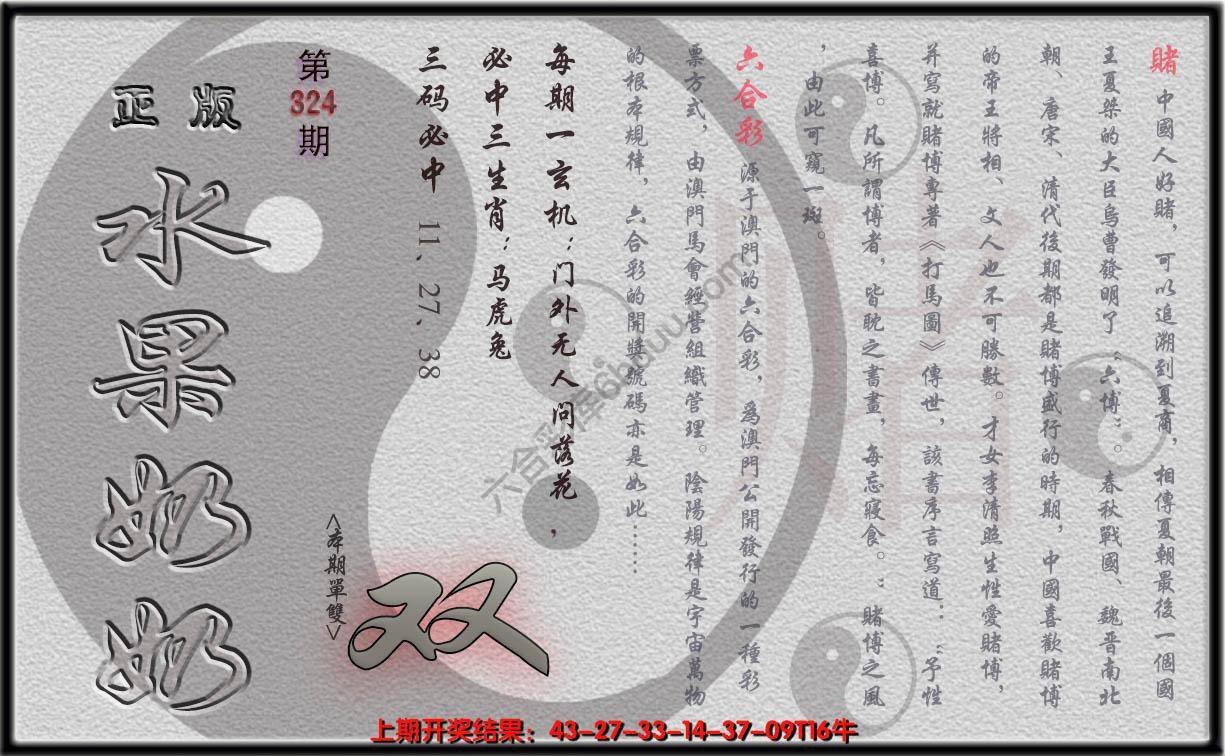 賭 中國人好賭，可以追溯到夏商，相傳夏朝最後一個國
王夏桀的大臣烏曹發明了“六博”。春秋戰國、魏晋南北
朝、唐宋、清代後期都是賭博盛行的時期，中國喜歡賭博
的帝王將相、文人也不可勝數。才女李清照生性愛賭博，
并寫就賭博專著《打馬圖》傳世，該書序言寫道：“予性
喜博。凡所謂博者，皆耽之書畫，每忘寢食。”賭博之風
，由此可窺一斑。
六合彩 源于澳門的六合彩，爲澳門公開發行的一種彩
票方式，由澳門馬會經營組織管理。陰陽規律是宇宙萬物
的根本規律，六合彩的開獎號碼亦是如此……
每期一玄机：门外无人问落花，
必中三生肖：马虎兔
三码必中 11、27、38
第
324
期
<本期單雙>
双
正版
水果奶奶
賭
六合彩庫6huuu.com
上期开奖结果：43-27-33-14-37-09T16牛